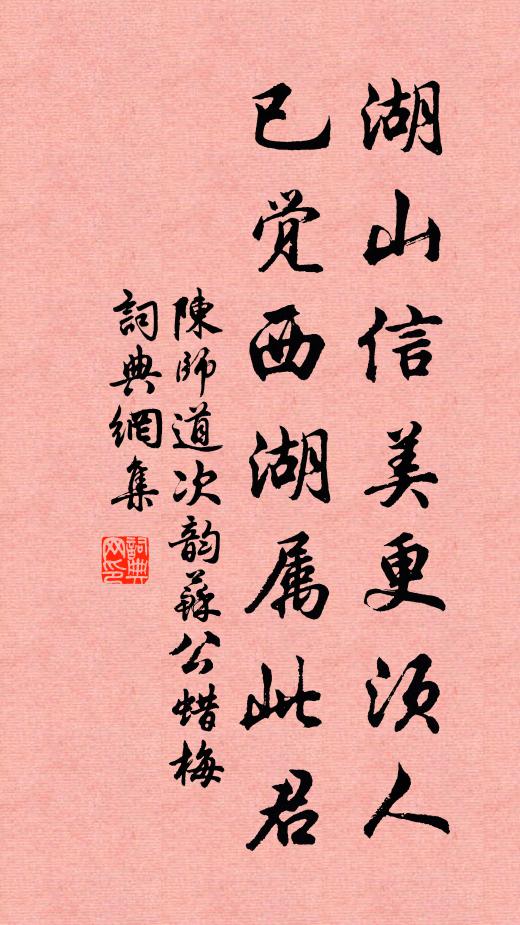 湖山信美更须人
已觉西湖属此君
陳師道次韵蘇公蜡梅
詞典網集
詞典网印